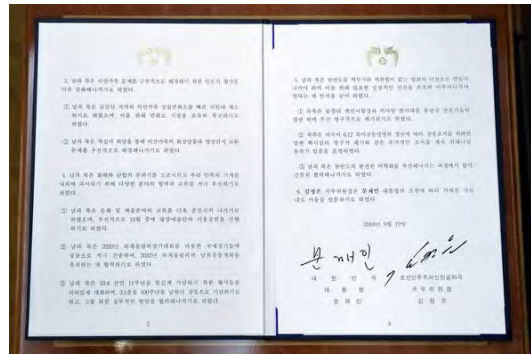 3. 남과 북은 이산가족 문제를 근본적으로 해결하기 위한 인도적 협력을
더욱 강화해나가기로 하였다.
① 남과 북은 금강산 지역의 이산가족 상설면회소를 빠른 시일내 개소
하기로 하였으며, 이를 위해 면회소 시설을 조속히 복구하기로
하였다.
② 남과 북은 적십자 회담을 통해 이산가족의 화상상봉과 영상편지 교환
문제를 우선적으로 해결해나가기로 하였다.
4. 남과 북은 화해와 단합의 분위기를 고조시키고 우리 민족의 기개를
내외에 과시하기 위해 다양한 분야의 협력과 교류를 적극 추진하기로
하였다.
① 남과 북은 문화 및 예술분야의 교류를 더욱 증진시켜 나가기로
하였으며, 우선적으로 10월 중에 평양예술단의 서울공연을 진행
하기로 하였다.
② 남과 북은 2020년 하계올림픽경기대회를 비롯한 국제경기들에
공동으로 적극 진출하며, 2032년 하계올림픽의 남북공동개최를
유치하는 데 협력하기로 하였다.
③ 남과 북은 10.4 선언 11주년을 뜻깊게 기념하기 위한 행사들을
의의있게 개최하며, 3.1운동 100주년을 남북이 공동으로 기념하기로
하고, 그를 위한 실무적인 방안을 협의해나가기로 하였다.
3
5. 남과 북은 한반도를 핵무기와 핵위협이 없는 평화의 터전으로 만들어
나가야 하며 이를 위해 필요한 실질적인 진전을 조속히 이루어나가야
한다는 데 인식을 같이 하였다.
① 북측은 동창리 엔진시험장과 미사일 발사대를 유관국 전문가들의
참관 하에 우선 영구적으로 폐기하기로 하였다.
② 북측은 미국이 6.12 북미공동성명의 정신에 따라 상응조치를 취하면
영변 핵시설의 영구적 폐기와 같은 추가적인 조치를 계속 취해나갈
용의가 있음을 표명하였다.
③ 남과 북은 한반도의 완전한 비핵화를 추진해나가는 과정에서 함께
긴밀히 협력해나가기로 하였다.
6. 김정은 국무위원장은 문재인 대통령의 초청에 따라 가까운 시일
내로 서울을 방문하기로 하였다.
2018년 9월 19일
문재인
대 한 민 국 조선민주주의인민공화국
대 통 령 국 무 위 원 장
문 재 인 김 정 은
4